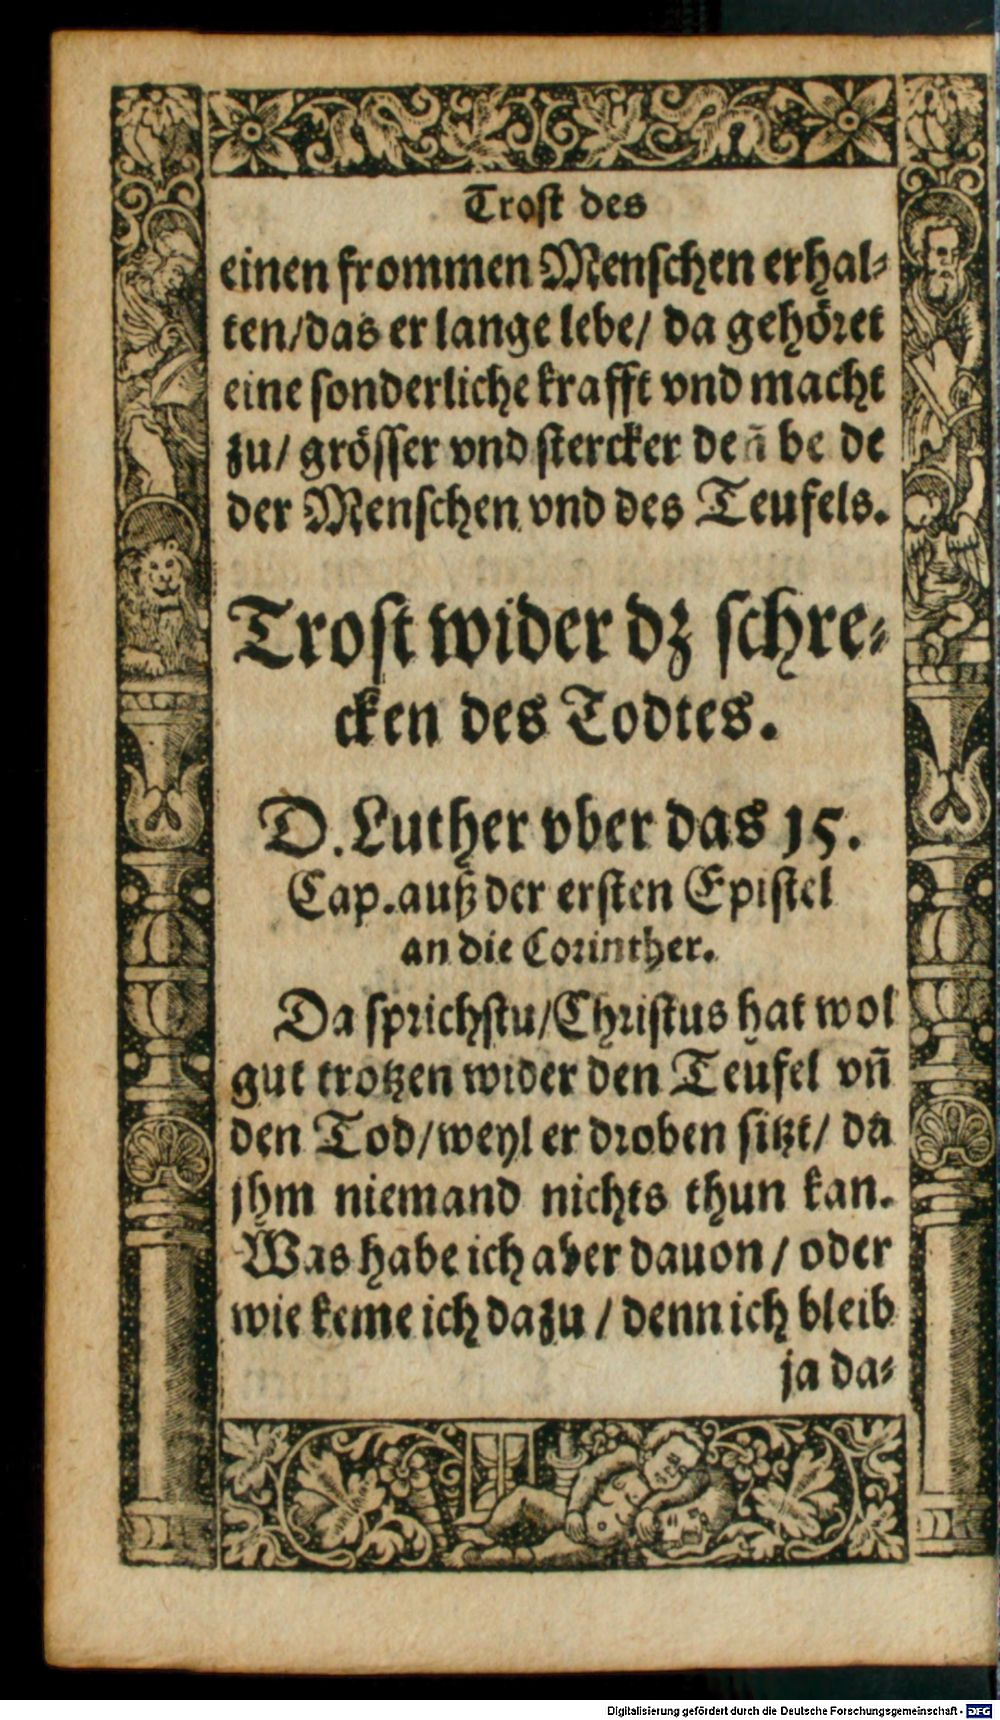 Trost des
einen frommen Menschen erhal-
ten/das er lange lebe/ da gehöret
eine sonderliche krafft vnd macht
zu/ grösser vnd stercker deñ be de
der Menschen vnd des Teufels.
Trost wider dz schre-
cken des Todtes.
D. Luther vber das 15.
Cap. auß der ersten Epistel
an die Corinther.
Da sprichstu/Christus hat wol
gut trotzen wider den Teufel vñ
den Tod/weyl er droben sitzt/ da
jhm niemand nichts thun kan.
Was habe ich aber dauon / oder
wie keme ich dazu / denn ich bleib
ja da-
Digitalisierung gefördert durch die Deutsche Forschungsgemeinschaft - DFG